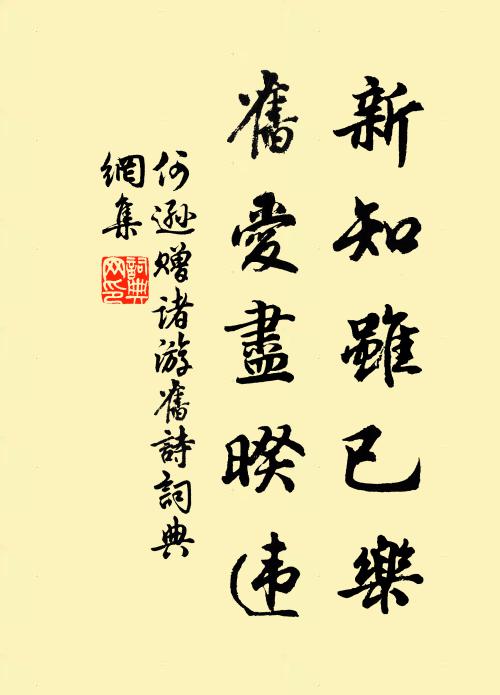 新知雖已樂
舊愛盡睽违
何遜贈诸游舊詩詞典
網集
詞典
网印